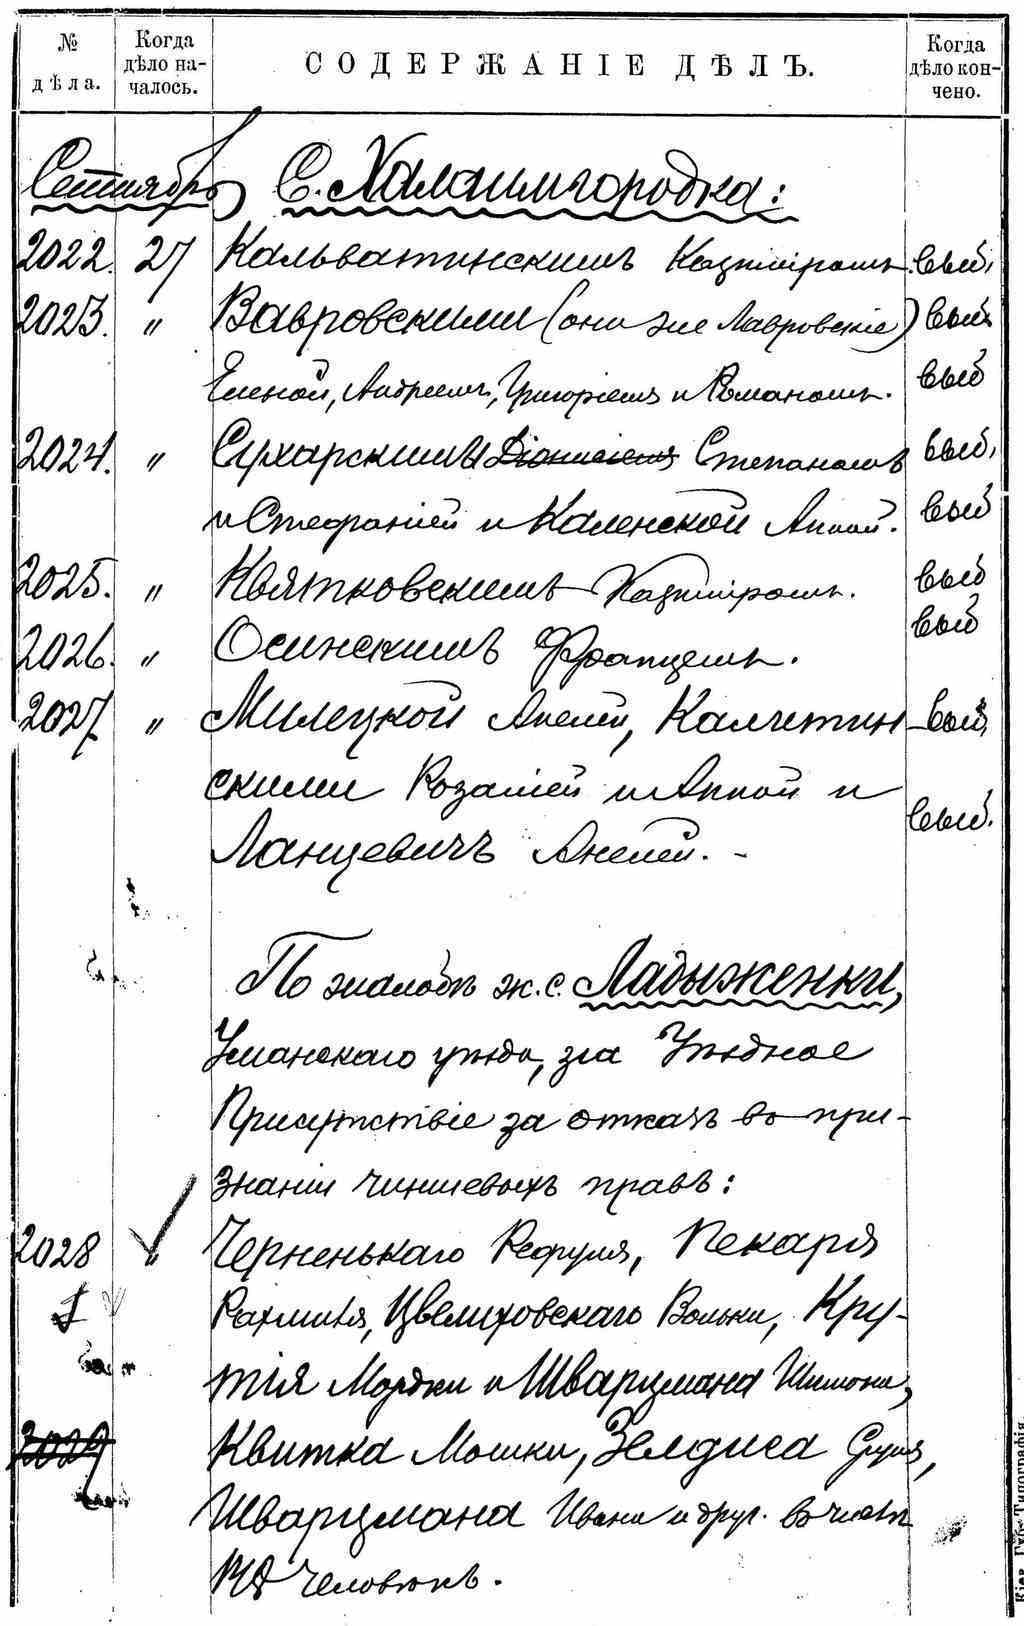 № дѣла.
Когда дѣло началось.
СОДЕРЖАНІЕ ДѢЛЪ.
Когда дѣло кончено.
Сентябрь С. Халаимгородка:
2022. 27 Кальватинскимъ Казиміромъ. выб.
2023. " Вавровскими (они же Лавровскіе) выб.
Еленой, Андреемъ, Григоріемъ и Романомъ. выб
2024. " Сухарскимъ Діонисіемъ Степаномъ выб.
и Стефаніей и Каленской Анной. выб
2025. " Квятковскимъ Казиміромъ. выб
2026. " Осинскимъ Францемъ. выб
2027 " Милецкой Анелей, Калчетин- выб.
скими Розаліей и Анной и
Ланцевичъ Анелей. - выб.
По жалобѣ ж. с. Ладыженки,
Уманскаго уѣзда, на Уѣздное
Присутствіе за отказъ въ при-
знаніи чиншевыхъ правъ:
2028 " Черненькаго Рефуля, Пекаря
Рахмиля, Цвелиховскаго Вольки, Кру-
тія Мордки и Шварцмана Шимона,
2029 Квитка Мошки, Зелдиса Сруля,
Шварцмана и друг. въ числѣ
человѣкъ.
Кіев. Губ. Типографія